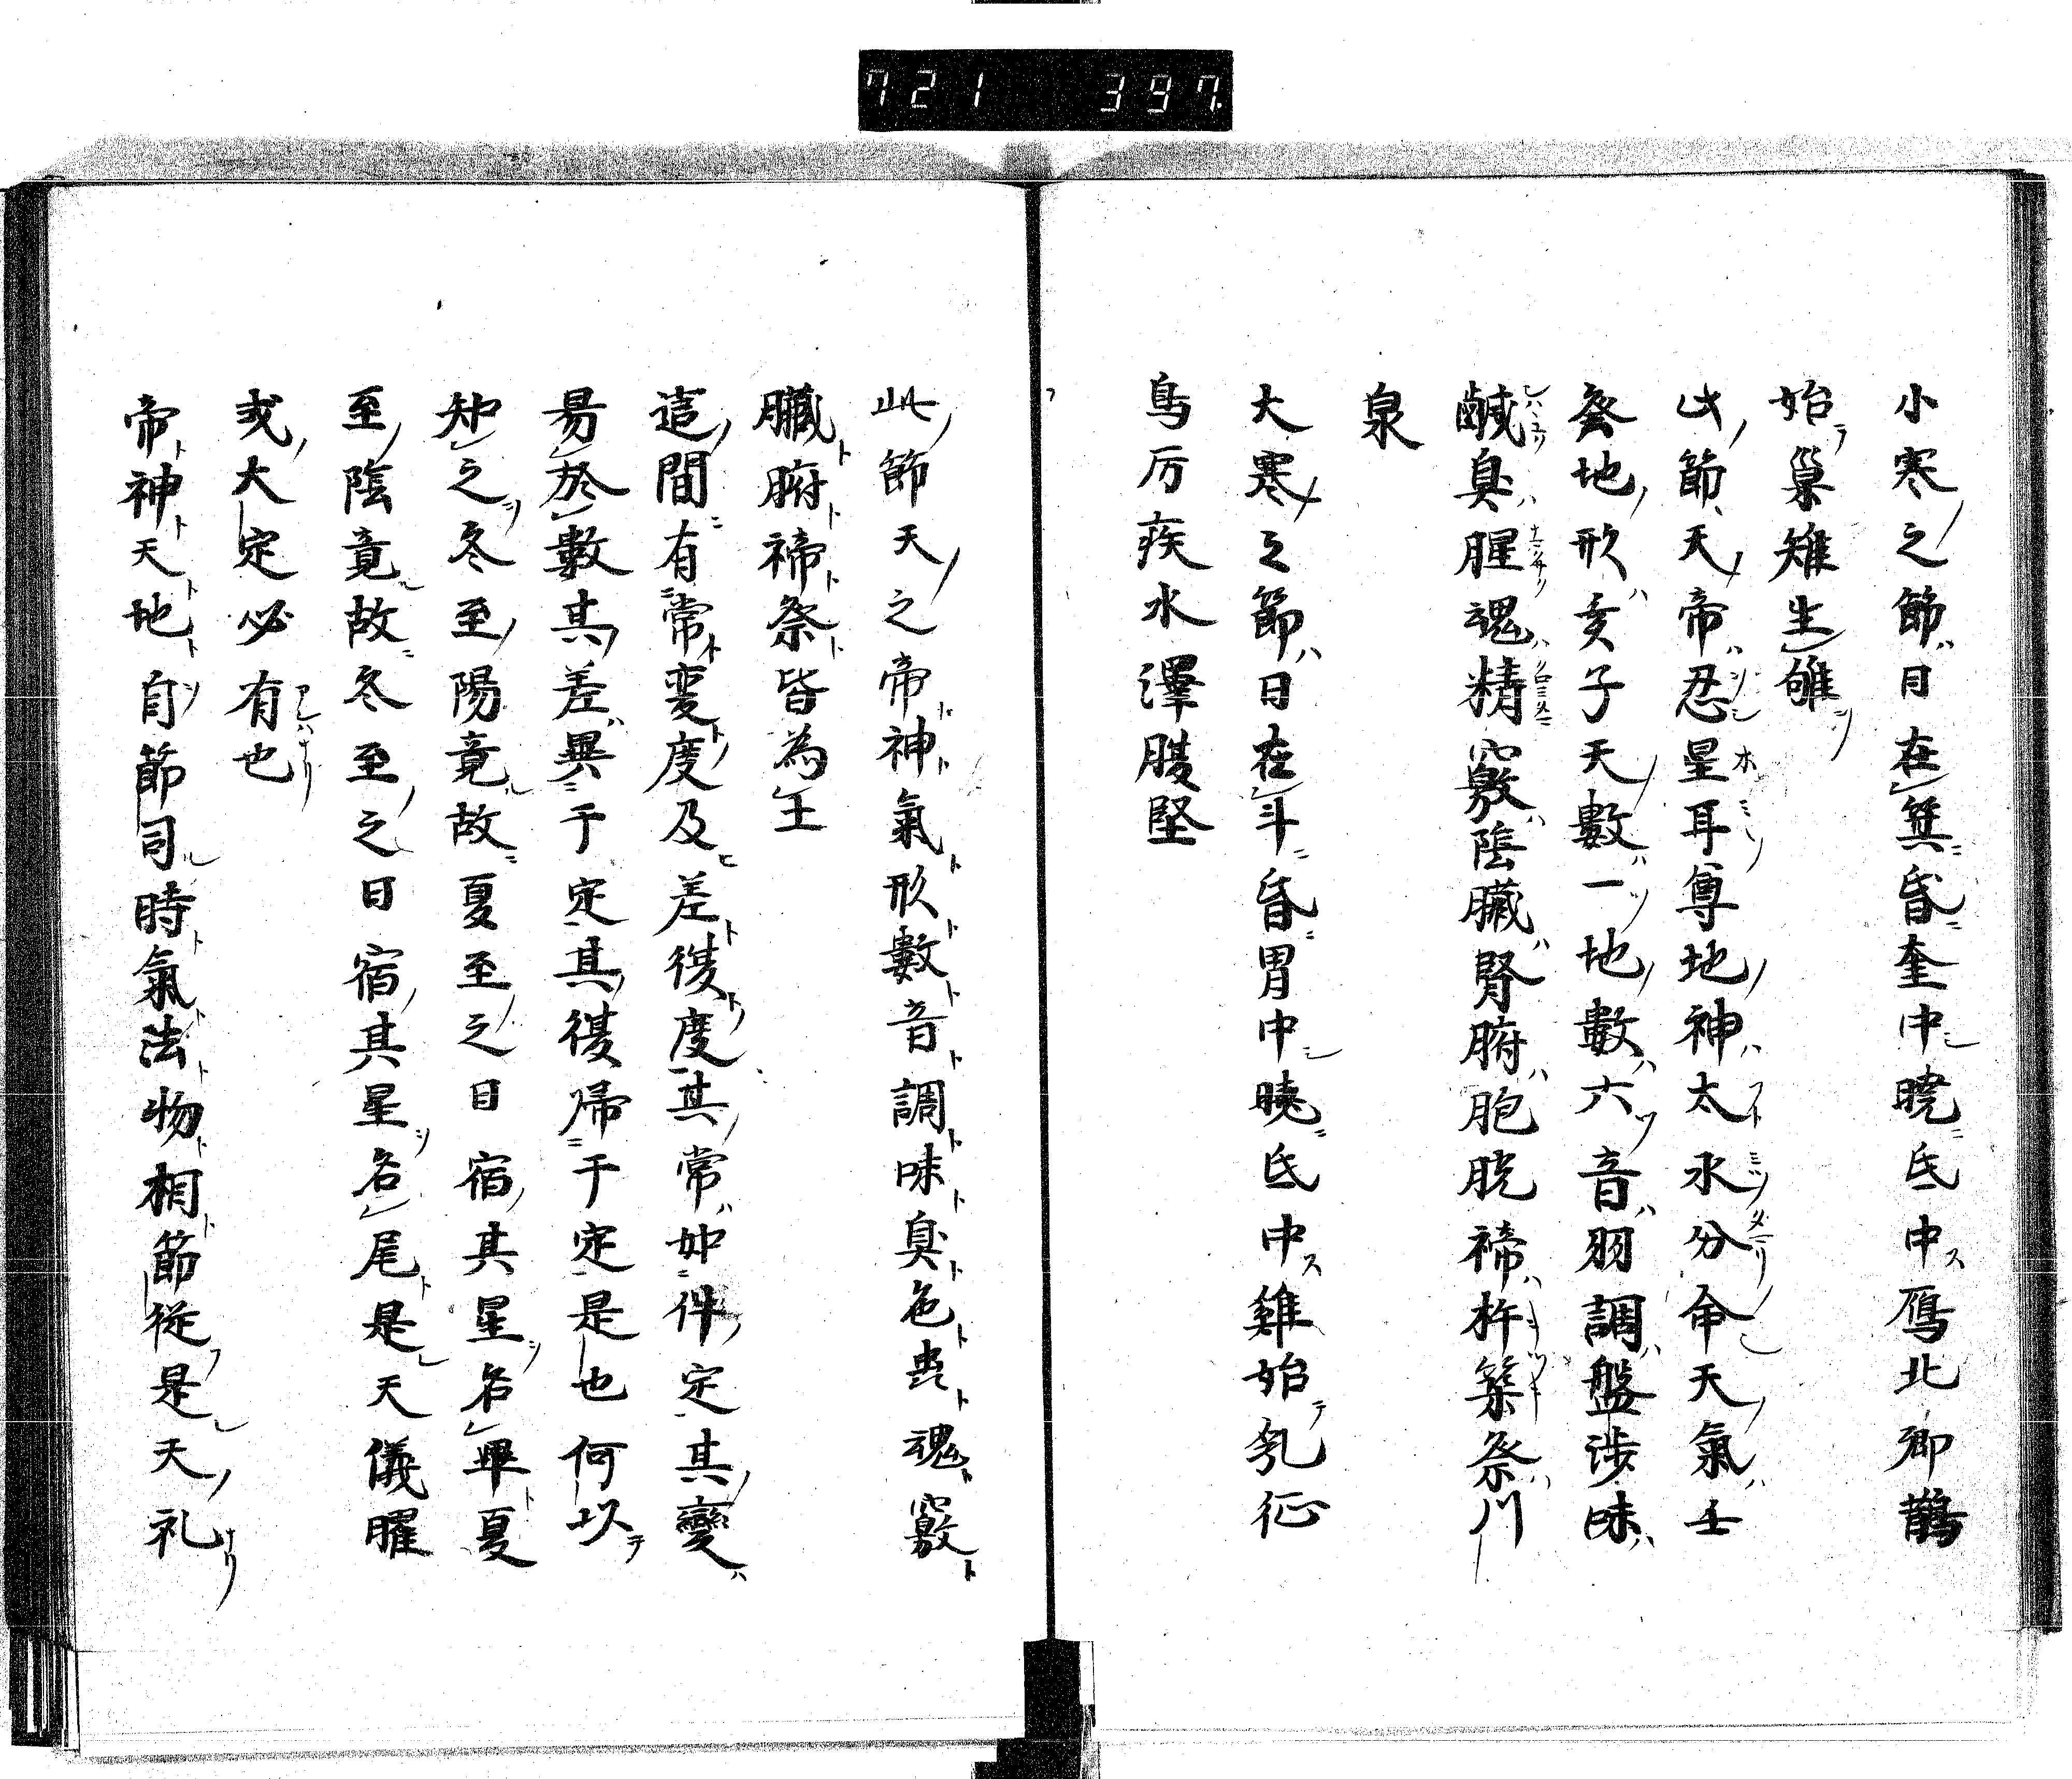 721 397
小寒之節日在箕昏奎中曉氐中鴈北郷鵲
始巢雉生雊
此節天帝忍星耳尊地神太水分命天氣壬
癸地形亥子天數一地數六音羽調盤渉味
鹹臭腥魂精竅陰臓腎腑胞脘禘杵築祭川
泉
大寒之節日在斗昏胃中曉氐中雞始乳征
鳥厉疾水澤腹堅
此節天之帝神氣形數音調味臭色虫魂竅
臓腑禘祭皆為王
這間有常变度及差復度其常如件定其變
易於數其差異于定其復帰于定是也何以
知之冬至陽竟故夏至之日宿其星名畢夏
至陰竟故冬至之日宿其星名尾是天儀曜
或大定必有也
帝神天地自節司時氣法物相節従是天礼